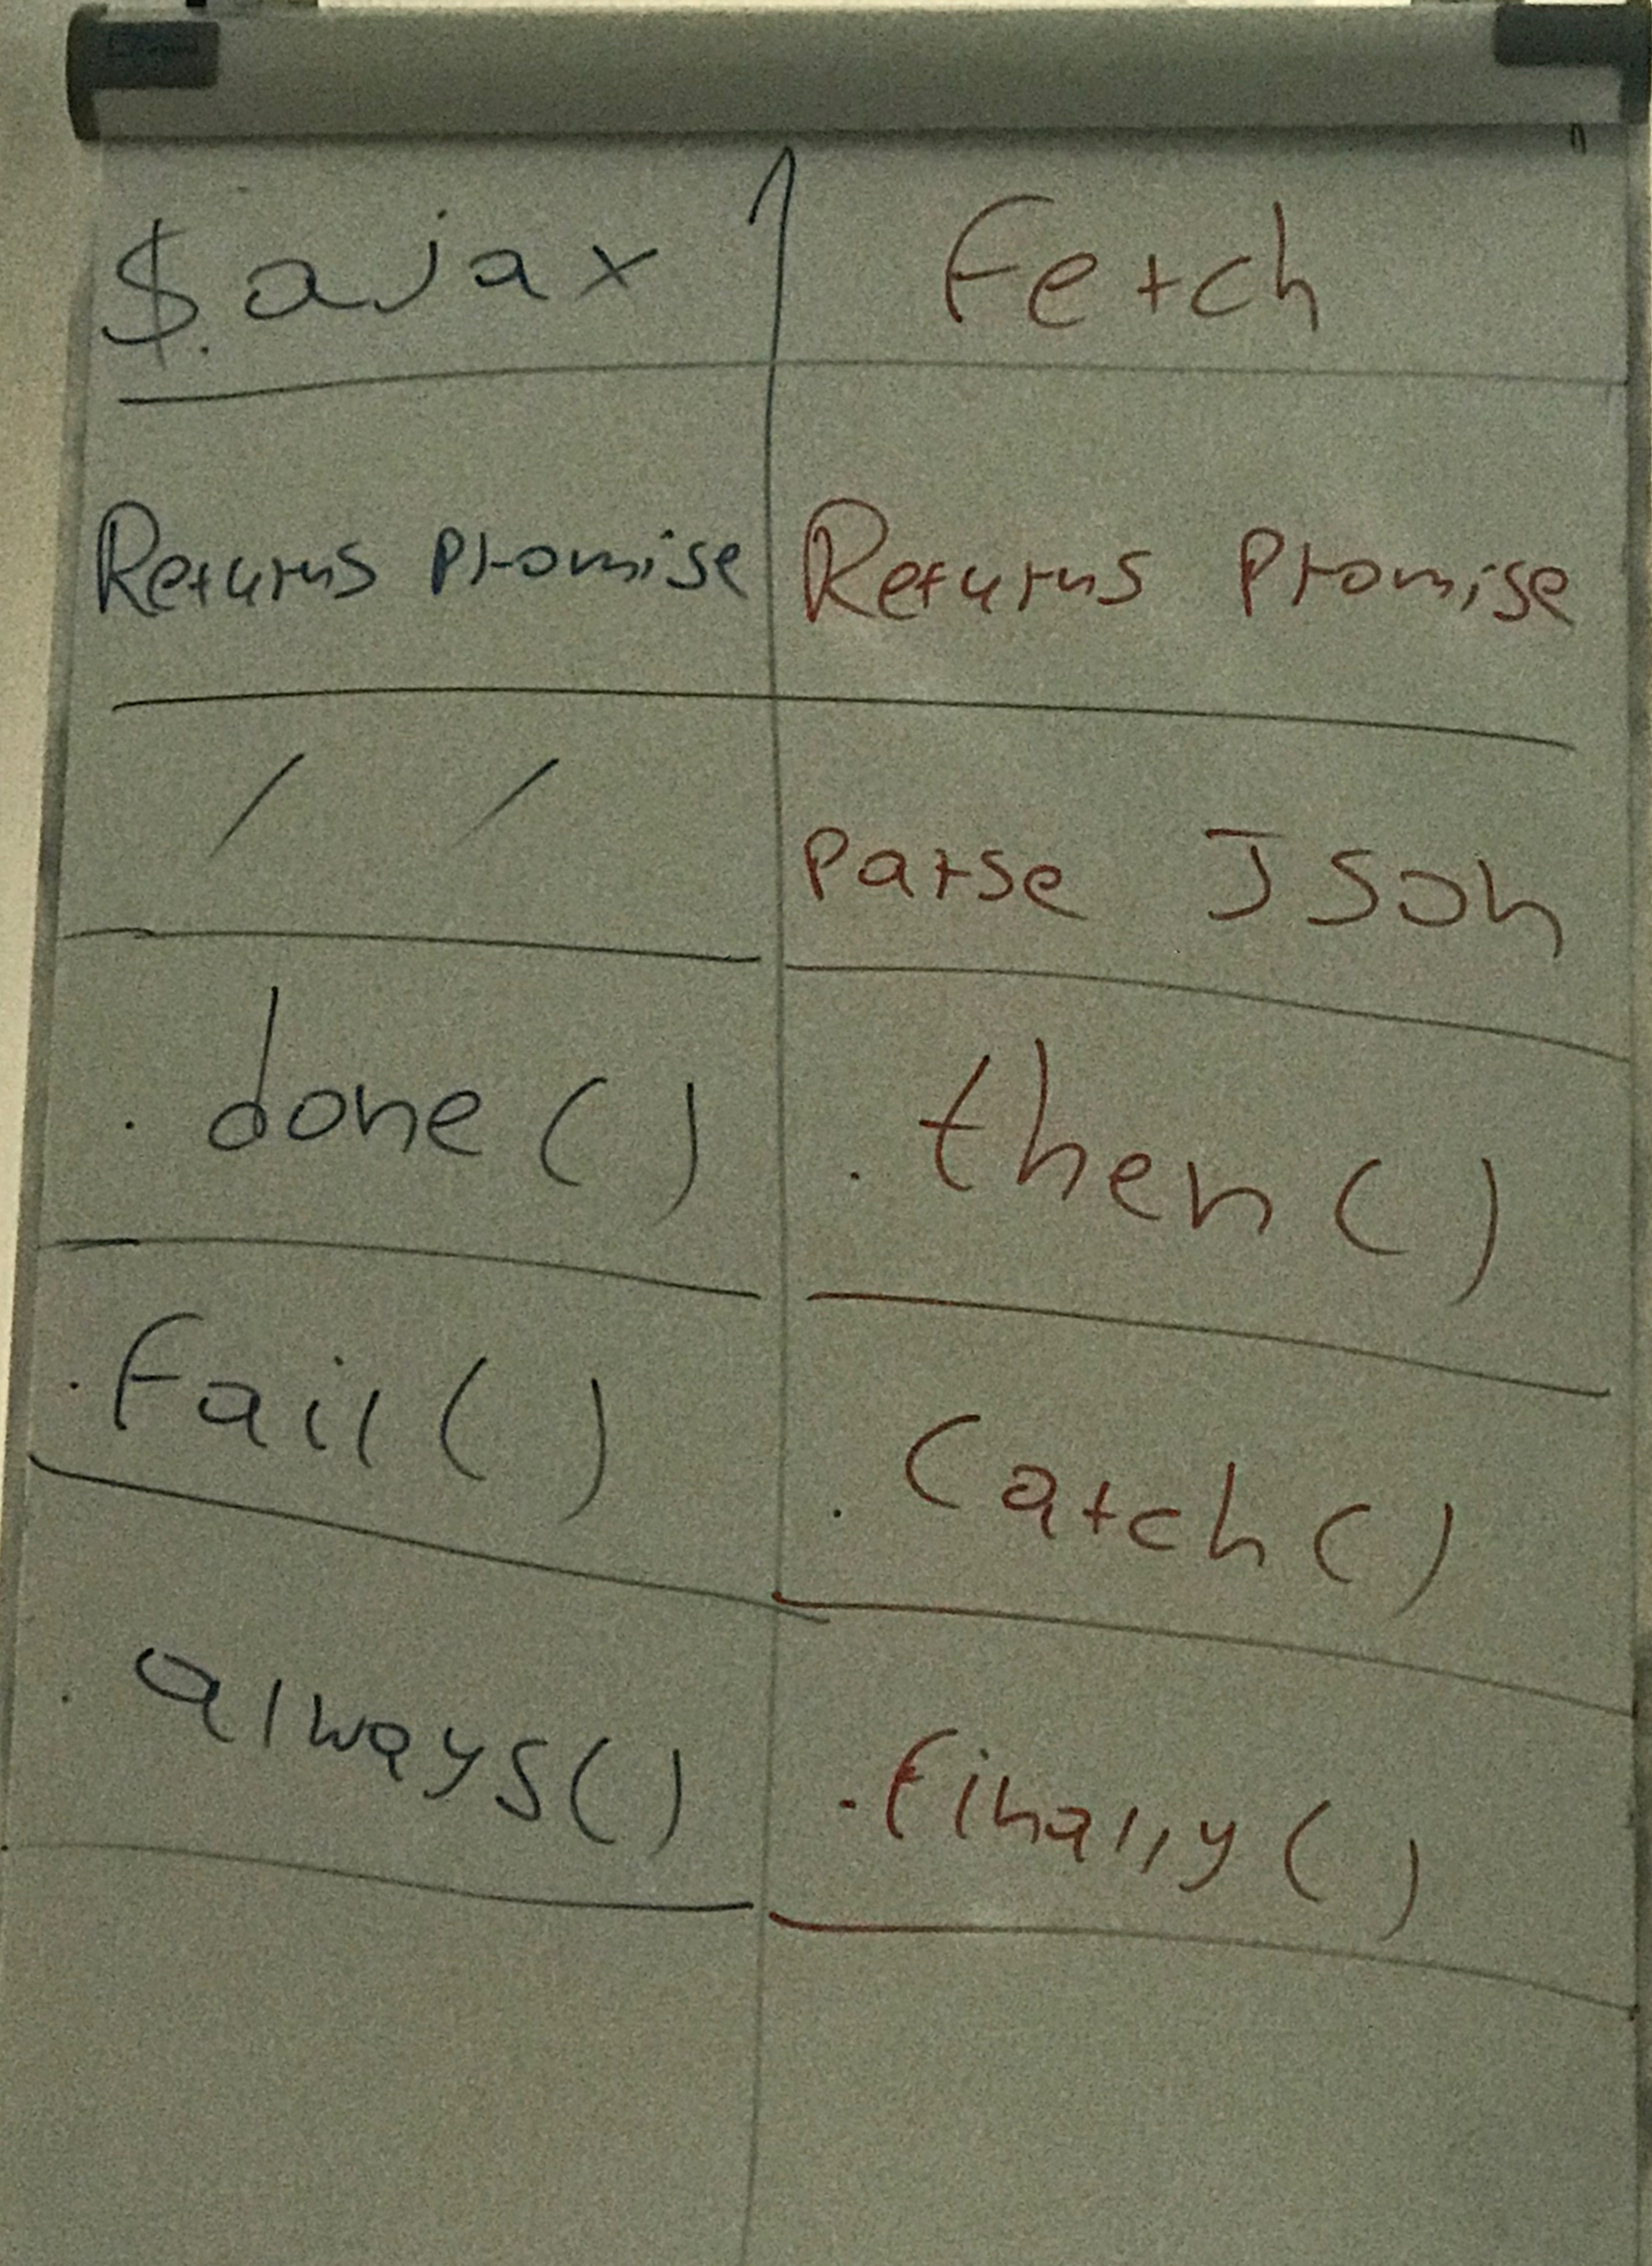 $.ajax Fetch
Returns Promise Returns Promise
/ / Parse Json
.done() .then()
.Fail() .Catch()
.always() .finally()